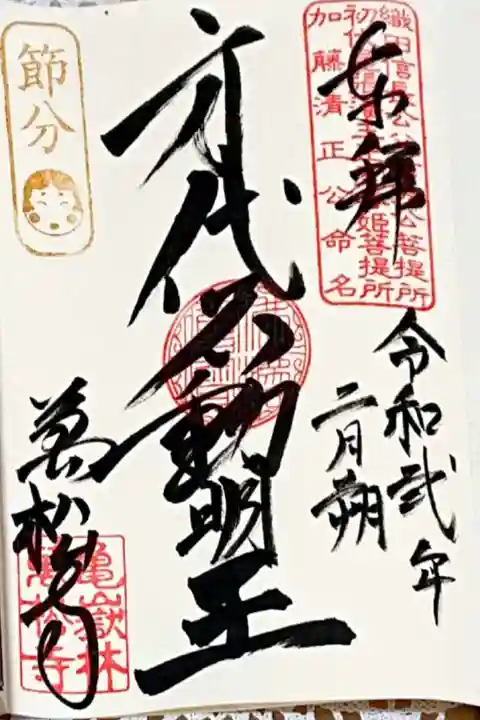 奉拝
織田信長公公菩提所
姫菩提所
加藤清正公命名
令和弐年
二月朔
身代不動明王
節分
萬松寺
亀嶽林
萬松寺